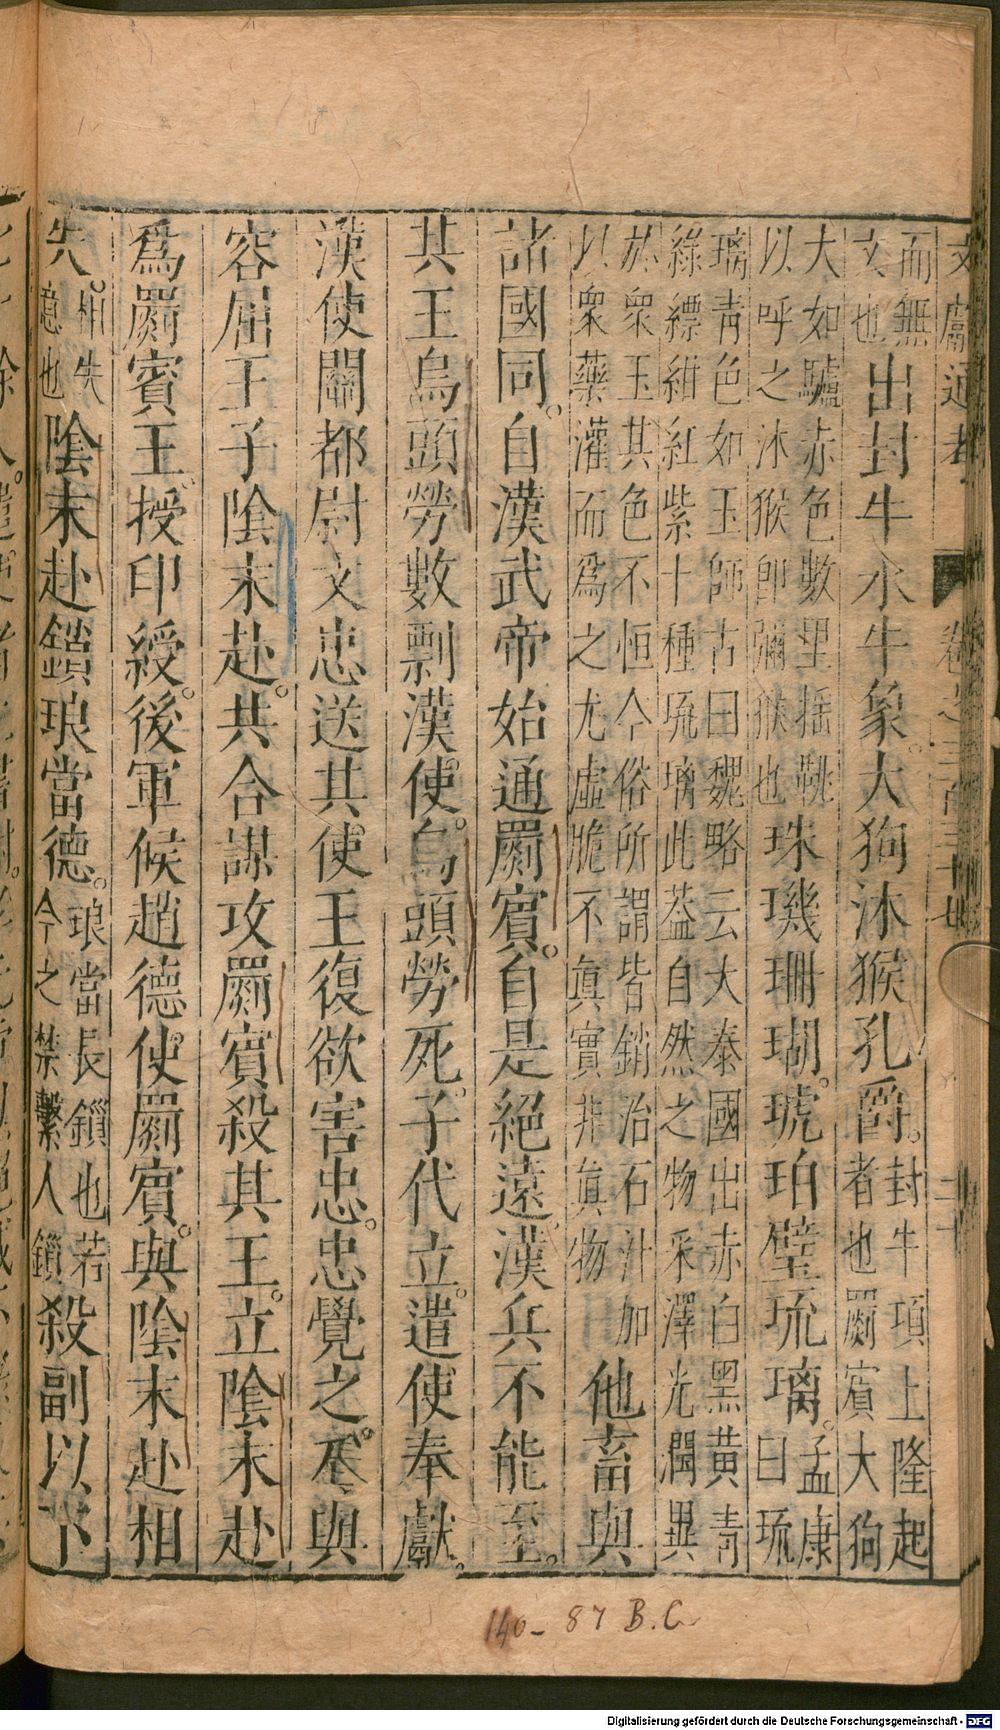 文獻通考 卷之三百三十七 二十
而無文也出封牛水牛象大狗沐猴孔爵。封牛項上隆起者也罽賓大狗
大如驢赤色數里搖鞉以呼之沐猴卽獼猴也珠璣珊瑚。琥珀璧琉璃。孟康曰琉
璃青色如玉師古曰魏略云大泰國出赤白黑黃青綠縹紺紅紫十種琉璃此葢自然之物采澤光潤異
於衆玉其色不恒今俗所謂皆銷治石汁加以衆藥灌而爲之尤虛脆不眞實非眞物他畜與
諸國同。自漢武帝始通罽賓。自是絕遠漢兵不能至。
其王烏頭勞數剽漢使。烏頭勞死。子代立。遣使奉獻。
漢使關都尉文忠送其使。王復欲害忠。忠覺之。與
容屈王子陰末赴。共合謀攻罽賓殺其王。立陰末赴
爲罽賓王授印綬。後軍候趙德使罽賓。與陰末赴相
失。相失意也陰末赴鎖琅當德。琅當長鎖也若今之禁繫人鎖殺副以下
140-87 B.C.
Digitalisierung gefördert durch die Deutsche Forschungsgemeinschaft - DFG